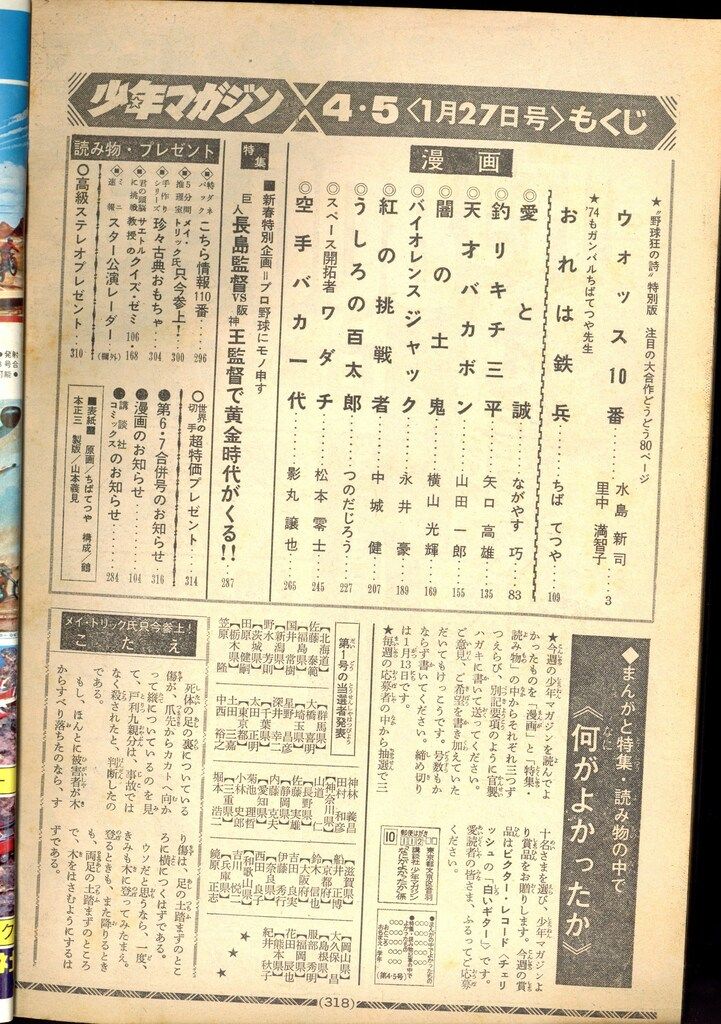 少年マガジン 4・5〈1月27日号〉もくじ
漫画
★“野球狂の詩”特別版 注目の大合作どうどう80ページ
ウォッス10番 水島新司 里中満智子 3
★'74もガンバルちばてつや先生
おれは鉄兵 ちばてつや 109
◎愛と誠 ながやす巧 83
◎釣りキチ三平 矢口高雄 135
◎天才バカボン 山田一郎 155
◎闇の土鬼 横山光輝 169
◎バイオレンスジャック 永井豪 189
◎紅の挑戦者 中城健 207
◎うしろの百太郎 つのだじろう 227
◎スペース開拓者ワダチ 松本零士 245
◎空手バカ一代 影丸譲也 265
特集
■新春特別企画=プロ野球にモノ申す
巨人長島監督VS阪神王監督で黄金時代がくる!! 287
読み物・プレゼント
◎特ダネパック こちら情報110番 296
■5分間推理室 メイ・トリック氏只今参上! 300
■手作りシリーズ 珍々古典おもちゃ 304
■君の頭脳に挑戦 サエトル教授のクイズ・ゼミ 106・168
■ミニ速報 スター公演レーダー (欄外)
○高級ステレオプレゼント 310
○世界の切手 超特価プレゼント 314
●第6・7合併号のお知らせ 316
●漫画のお知らせ 104
●講談社コミックスのお知らせ 284
■表紙■ 原画/ちばてつや 構成/鶴
本正三 製版/山本義見
◆まんがと特集・読み物の中で
《何がよかったか》
★今週の少年マガジンを読んでよ
かったものを「漫画」と「特集・
読み物」の中からそれぞれ三つず
つえらび、別記要項のように官製
ハガキに書いて送ってください。
ご意見、ご希望を書き加えていた
だいてもけっこうです。号数もか
ならず書いてください。締め切り
は1月13日です。
★毎週の応募者の中から抽選で三
十名さまを選び、少年マガジンよ
り賞品をお贈りします。今週の賞
品はビクター・レコード〈チェリ
ッシュの「白いギター」〉です。
愛読者の皆さま、ふるってご応募
ください。
郵便はがき
10 112
東京都文京区音羽
講談社 少年マガジン
なにがよかったか係
(第4・5号)
第1号の当選者発表
【北海道】
佐藤泰範
【福島県】
国井常樹
【新潟県】
野水芳則
【茨城県】
田原健嗣
【栃木県】
笠原隆
【群馬県】
大橋喜明
【埼玉県】
星野昌彦
深井幸二
【千葉県】
太田正明
【東京都】
土田三嘉
中西裕之
神林義昌
田村和彦
【神奈川県】
山道仁
【長野県】
佐藤実雄
【静岡県】
内藤克夫
【愛知県】
菊池理哲
小林史郎
【三重県】
堀本浩二
【滋賀県】
船井正博
【京都府】
鈴木信也
【大阪府】
吉田良実
伊藤秀行
【奈良県】
西田良子
【和歌山県】
吉川悦司
【兵庫県】
鏡原正志
【岡山県】
大久保昌
【島根県】
服部秀明
【福岡県】
花田辰也
【熊本県】
紀井秋子
メイ・トリック氏只今参上!
こたえ
死体の足の裏についている
傷が、爪先からカカトへ向か
って縦についているのを見
て、戸利九親分は、事故では
なく殺されたと、判断したの
である。
もし、ほんとに被害者が木
からすべり落ちたのなら、す
り傷は、足の土踏まずのとこ
ろに横につくはずである。
ウソだと思うなら、一度、
きみも木に登ってみたまえ。
登るときも、また降りるとき
も、両足の土踏まずのところ
で、木をはさむようにするは
ずである。
(318)